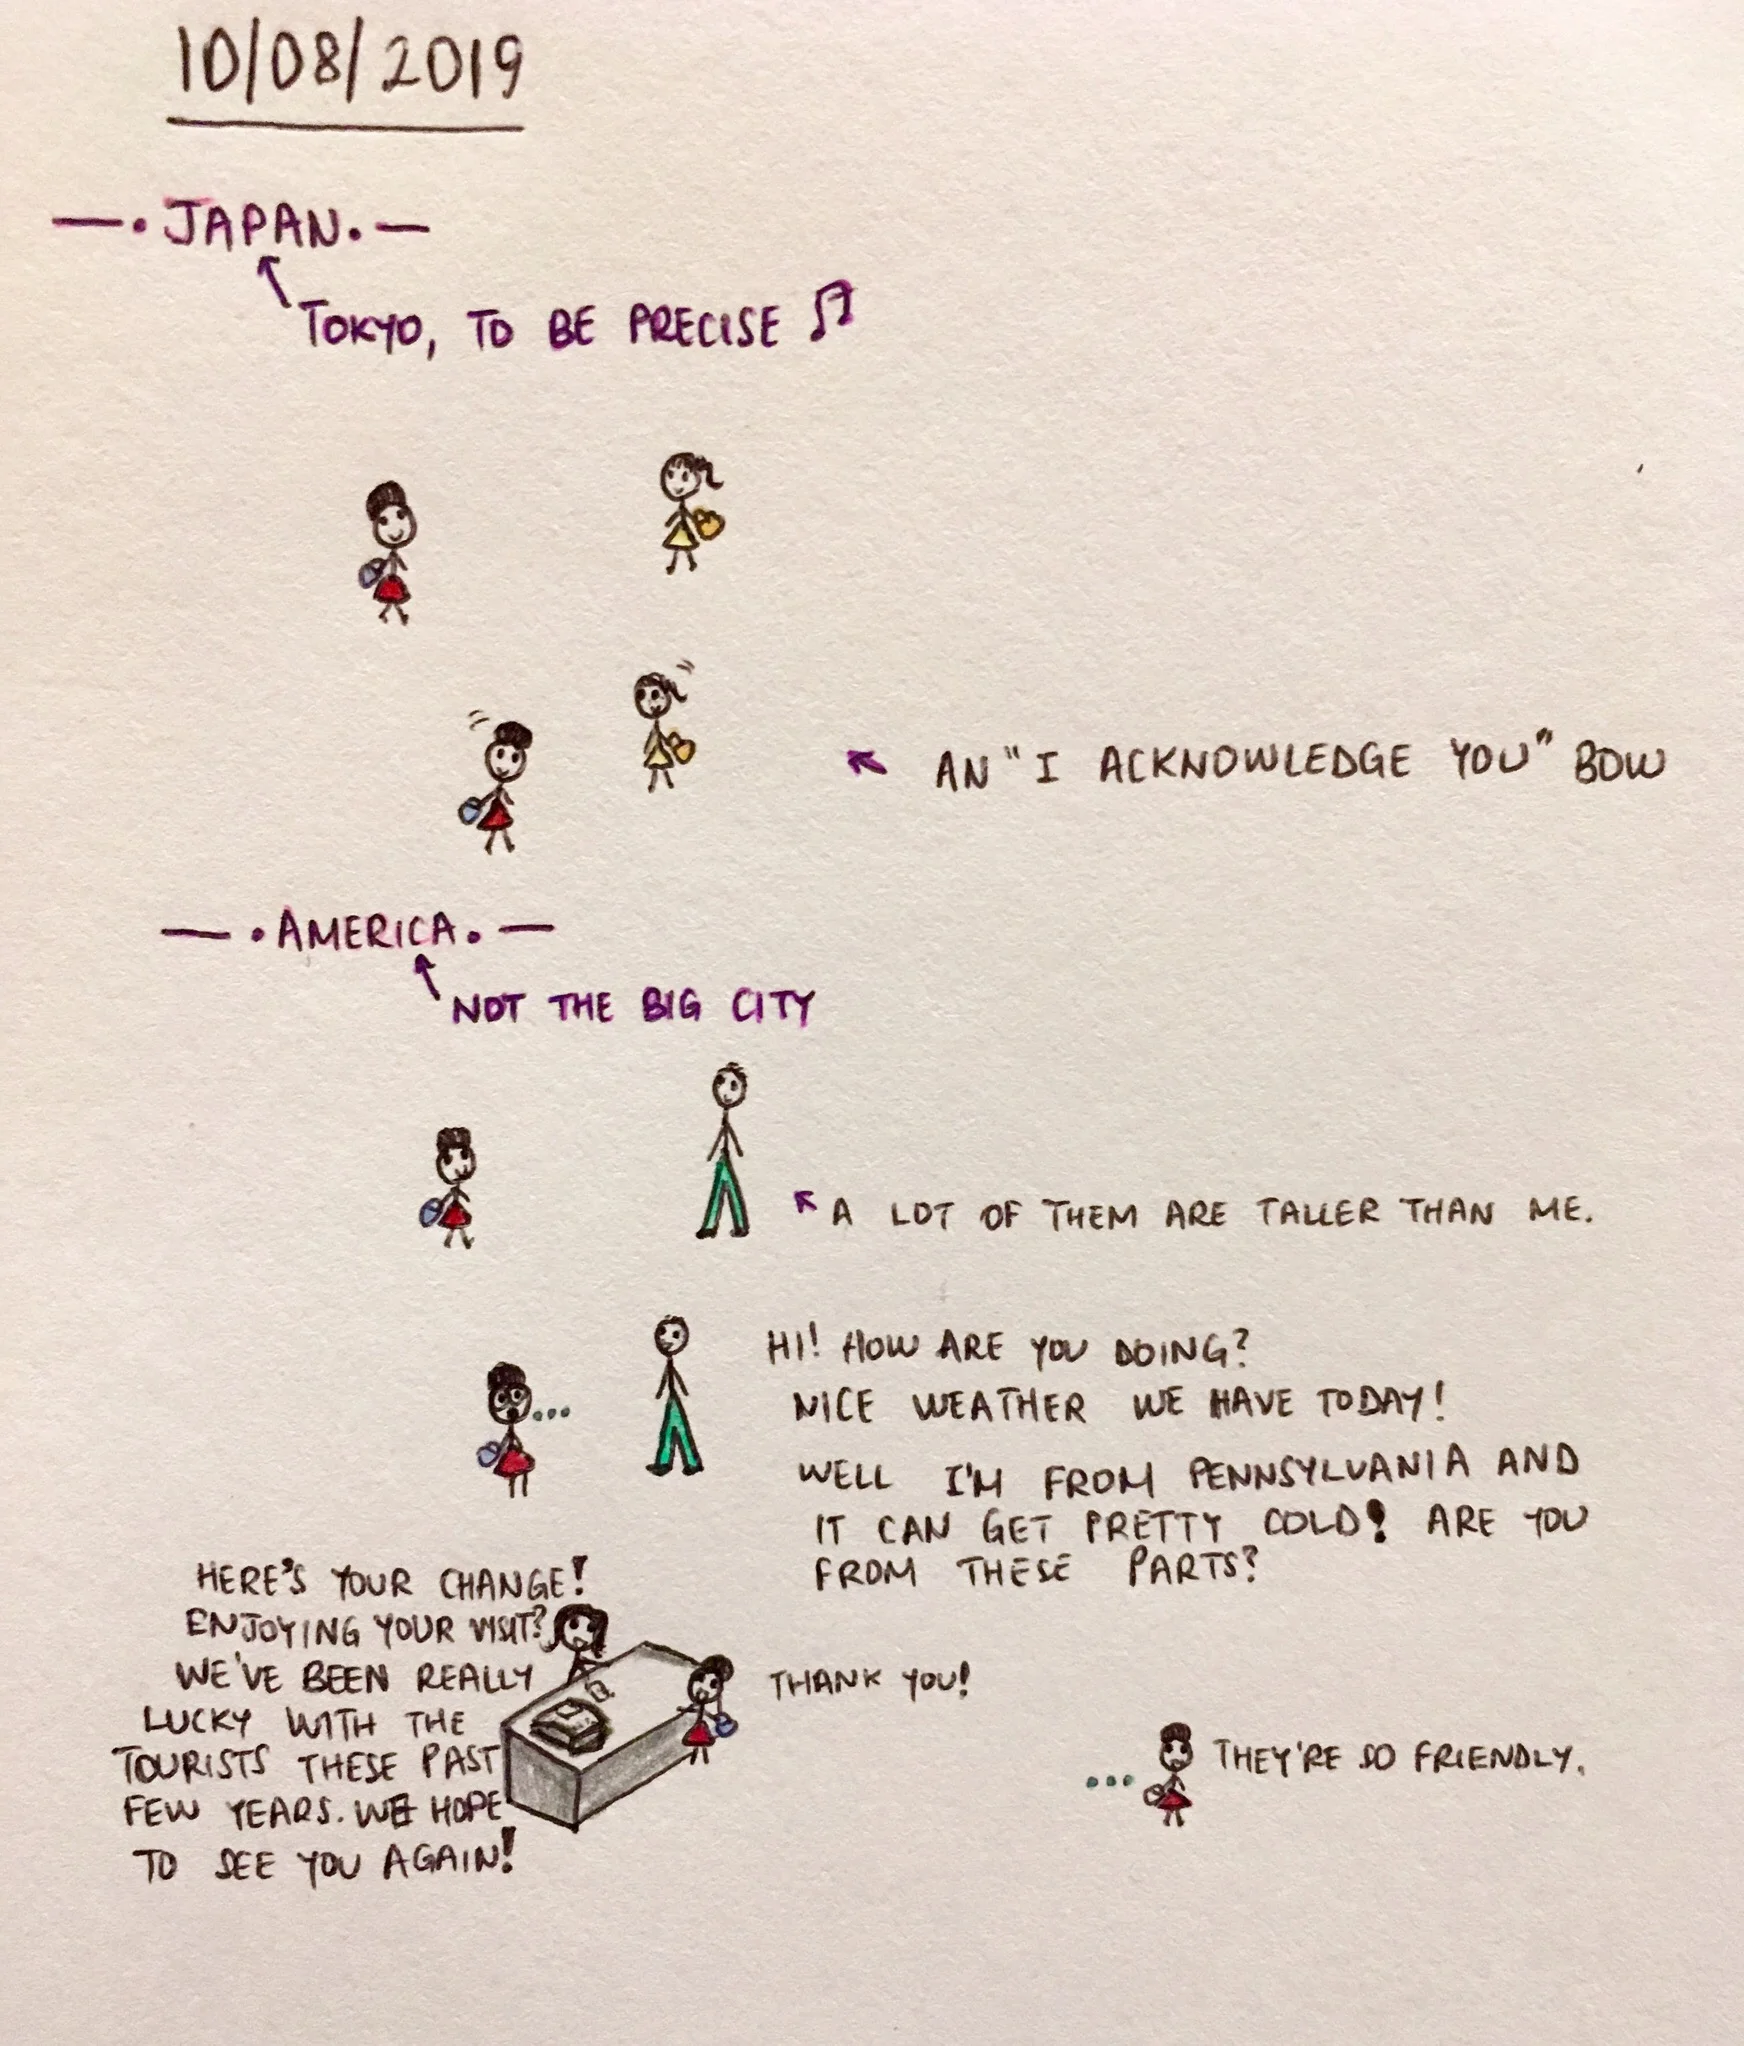 10/08/2019
—.JAPAN.—
TOKYO, TO BE PRECISE ♫
AN "I ACKNOWLEDGE YOU" BOW
—.AMERICA.—
NOT THE BIG CITY
A LOT OF THEM ARE TALLER THAN ME.
...
HI! HOW ARE YOU DOING?
NICE WEATHER WE HAVE TODAY!
WELL I'M FROM PENNSYLVANIA AND
IT CAN GET PRETTY COLD! ARE YOU
FROM THESE PARTS?
HERE'S YOUR CHANGE!
ENJOYING YOUR VISIT?
WE'VE BEEN REALLY
LUCKY WITH THE
TOURISTS THESE PAST
FEW YEARS. WE HOPE
TO SEE YOU AGAIN!
THANK YOU!
... THEY'RE SO FRIENDLY.